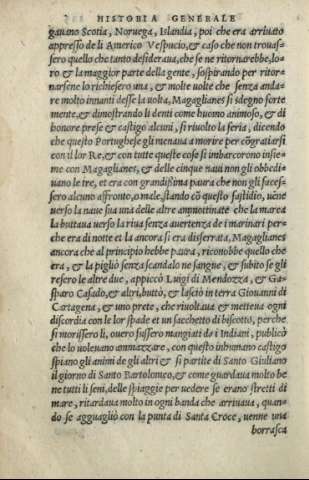 HISTORIA GENERALE
gauano Scotia, Noruega, Islandia, poi che era arriuato
appresso de li Americo Vespucio, & caso che non trouas=
sero quello che tanto desideraua, che se ne ritornarebbe, lo=
ro & la maggior parte della gente, sospirando per ritor=
narsene lo richiesero una, & molte uolte che senza anda=
re molto innanti desse la uolta, Magaglianes si sdegno forte
mente, & dimostrando li denti come huomo animoso, & di
honore prese & castigo alcuni, si riuolto la seria, dicendo
che questo Portughese gli menaua a morire per cõgratiarsi
con il lor Re, & con tutte queste cose si imbarcorono insie=
me con Magaglianes, & delle cinque naui non gli obbedi=
uano le tre, et era con grandissima paura che non gli faces=
sero alcuno affronto, o male, stando cõ questo fastidio, uẽne
uerso la naue sua una delle altre ammottinate che la marea
la buttaua uerso la riua senza auertenza de i marinari per=
che era di notte et la ancora si era disserrata, Magaglianes
ancora che al principio hebbe paura, riconobbe quello che
era, & la pigliò senza scandalo ne sangue, & subito se gli
resero le altre due, appiccò Luigi di Mendozza, & Ga=
sparo Casado, & altri, buttò, & lasciò in terra Giouanni di
Cartagena, & uno prete, che riuoltaua & metteua ogni
discordia con le lor spade et un sacchetto di biscotto, perche
si morissero li, ouero fussero mangiati da i Indiani, publicò
che lo uoleuano ammazzare, con questo inhumano castigo
spiano gli animi de gli altri & si partite di Santo Giuliano
il giorno di Santo Bartolomeo, & come guardaua molto be
ne tutti li seni, delle spiaggie per uedere se erano stretti di
mare, ritardaua molto in ogni banda che arriuaua, quan=
do se agguagliò con la punta di Santa Croce, uenne una
borrasca